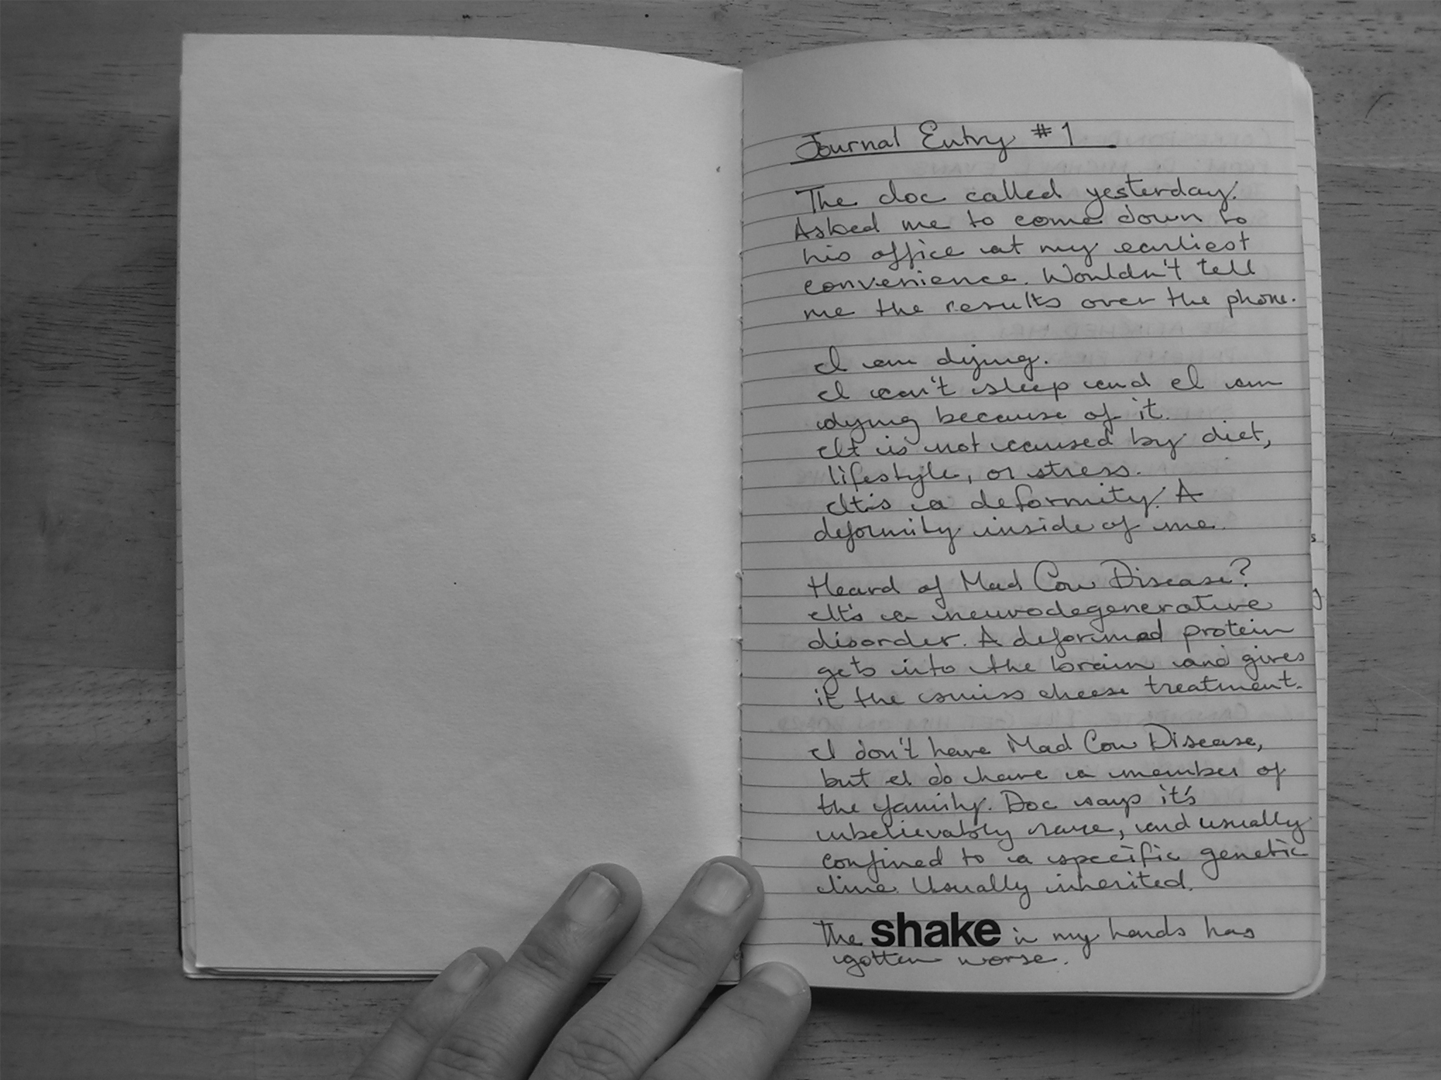 Journal Entry #1
The doc called yesterday.
Asked me to come down to
his office at my earliest
convenience. Wouldn't tell
me the results over the phone.
I am dying.
I can't sleep and I am
dying because of it.
It is not caused by diet,
lifestyle, or stress.
It's a deformity. A
deformity inside of me.
Heard of Mad Cow Disease?
It's a neurodegenerative
disorder. A deformed protein
gets into the brain and gives
it the swiss cheese treatment.
I don't have Mad Cow Disease,
but I do have a member of
the family. Doc says it's
unbelievably rare, and usually
confined to a specific genetic
line. Usually inherited.
The shake in my hands has
gotten worse.